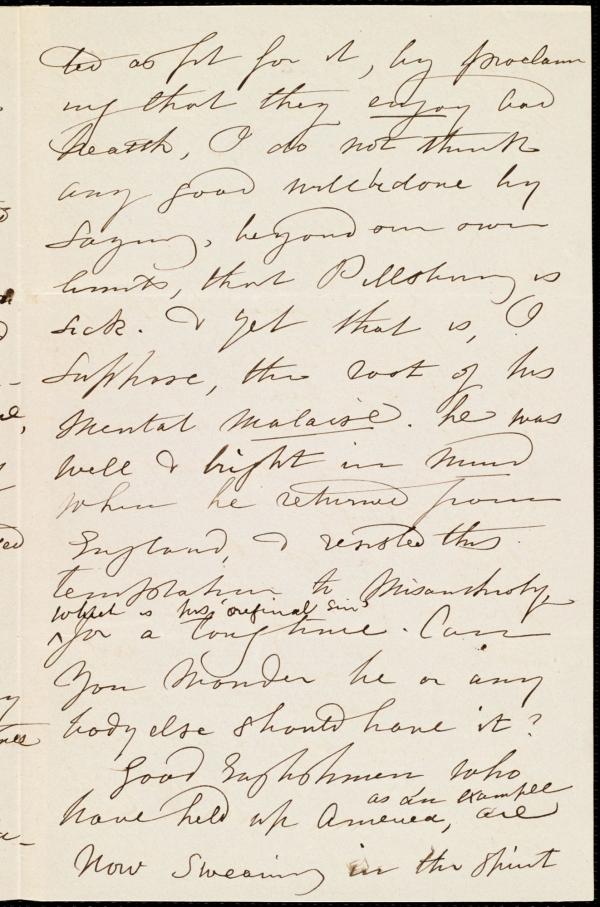 ted as fit for it, by proclaim
ing that they enjoy bad
health, I do not think
any good will be done by
saying, beyond our own
limits, that Pillsbury is
sick. & yet that is, I
suppose, the root of his
mental malaise. he was
well & bright in mind
when he returned from
England, & resisted this
temptation to misanthropy
which is his 'original sin'
for a long time. Can
you wonder he or any
body else should have it?
Good Englishmen who
as an example
have held up America, are
now swearing in the spirit